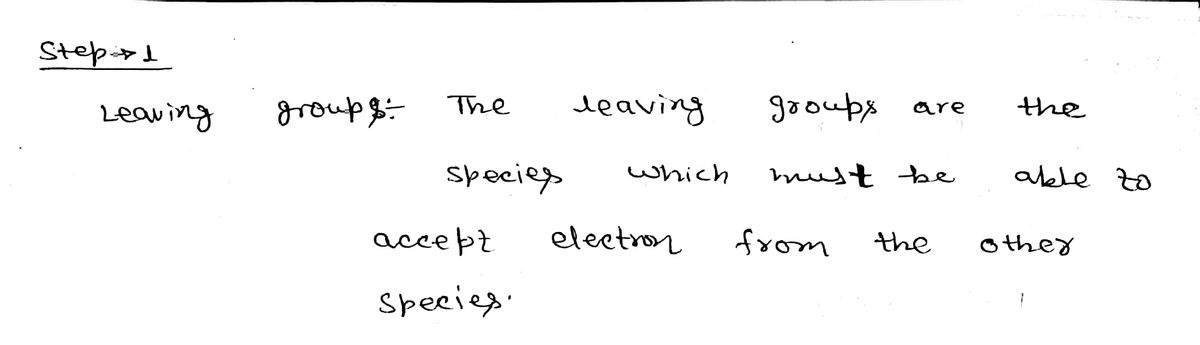 Step → 1
Leaving groups:- The leaving groups are the
species which must be able to
accept electron from the other
species.